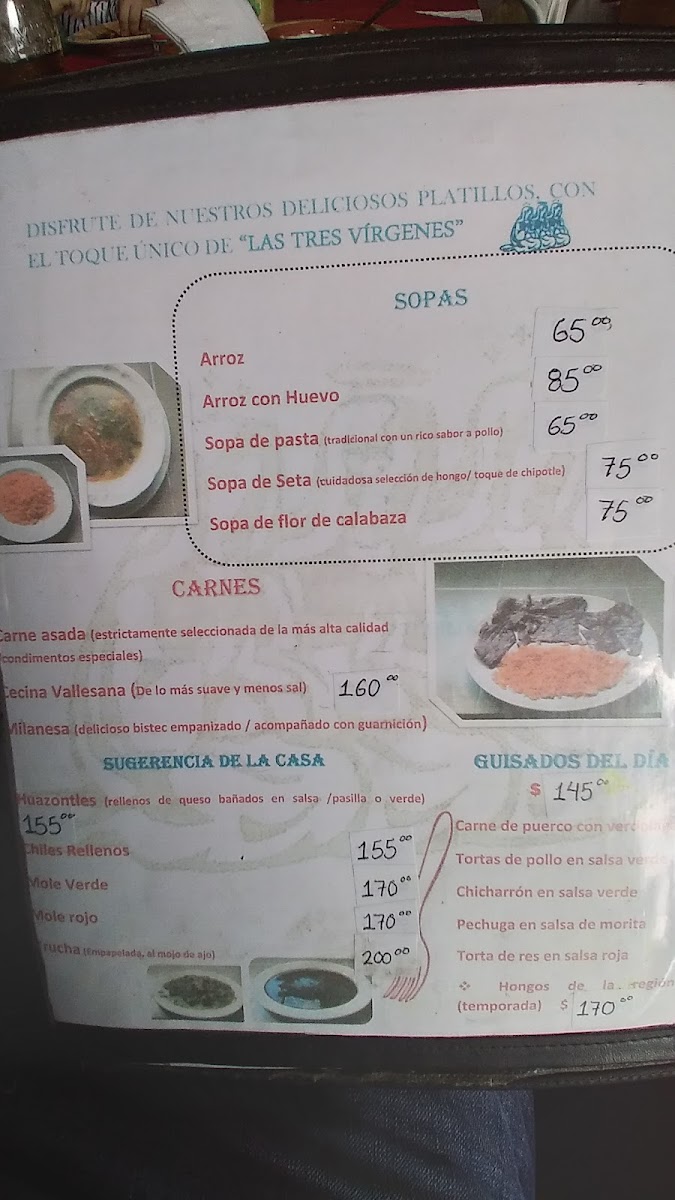 DISFRUTE DE NUESTROS DELICIOSOS PLATILLOS, CON
EL TOQUE ÚNICO DE “LAS TRES VÍRGENES”
SOPAS
Arroz 65.00
Arroz con Huevo 85.00
Sopa de pasta (tradicional con un rico sabor a pollo) 65.00
Sopa de Seta (cuidadosa selección de hongo/ toque de chipotle) 75.00
Sopa de flor de calabaza 75.00
CARNES
Carne asada (estrictamente seleccionada de la más alta calidad
condimentos especiales)
Cecina Vallesana (De lo más suave y menos sal) 160.00
Milanesa (delicioso bistec empanizado / acompañado con guarnición)
SUGERENCIA DE LA CASA
Huazontles (rellenos de queso bañados en salsa /pasilla o verde)
155.00
Chiles Rellenos 155.00
Mole Verde 170.00
Mole rojo 170.00
Trucha (Empapelada, al mojo de ajo) 200.00
GUISADOS DEL DÍA
$ 145.00
Carne de puerco con
Tortas de pollo en salsa verde
Chicharrón en salsa verde
Pechuga en salsa de morita
Torta de res en salsa roja
❖ Hongos de la región
(temporada) $ 170.00